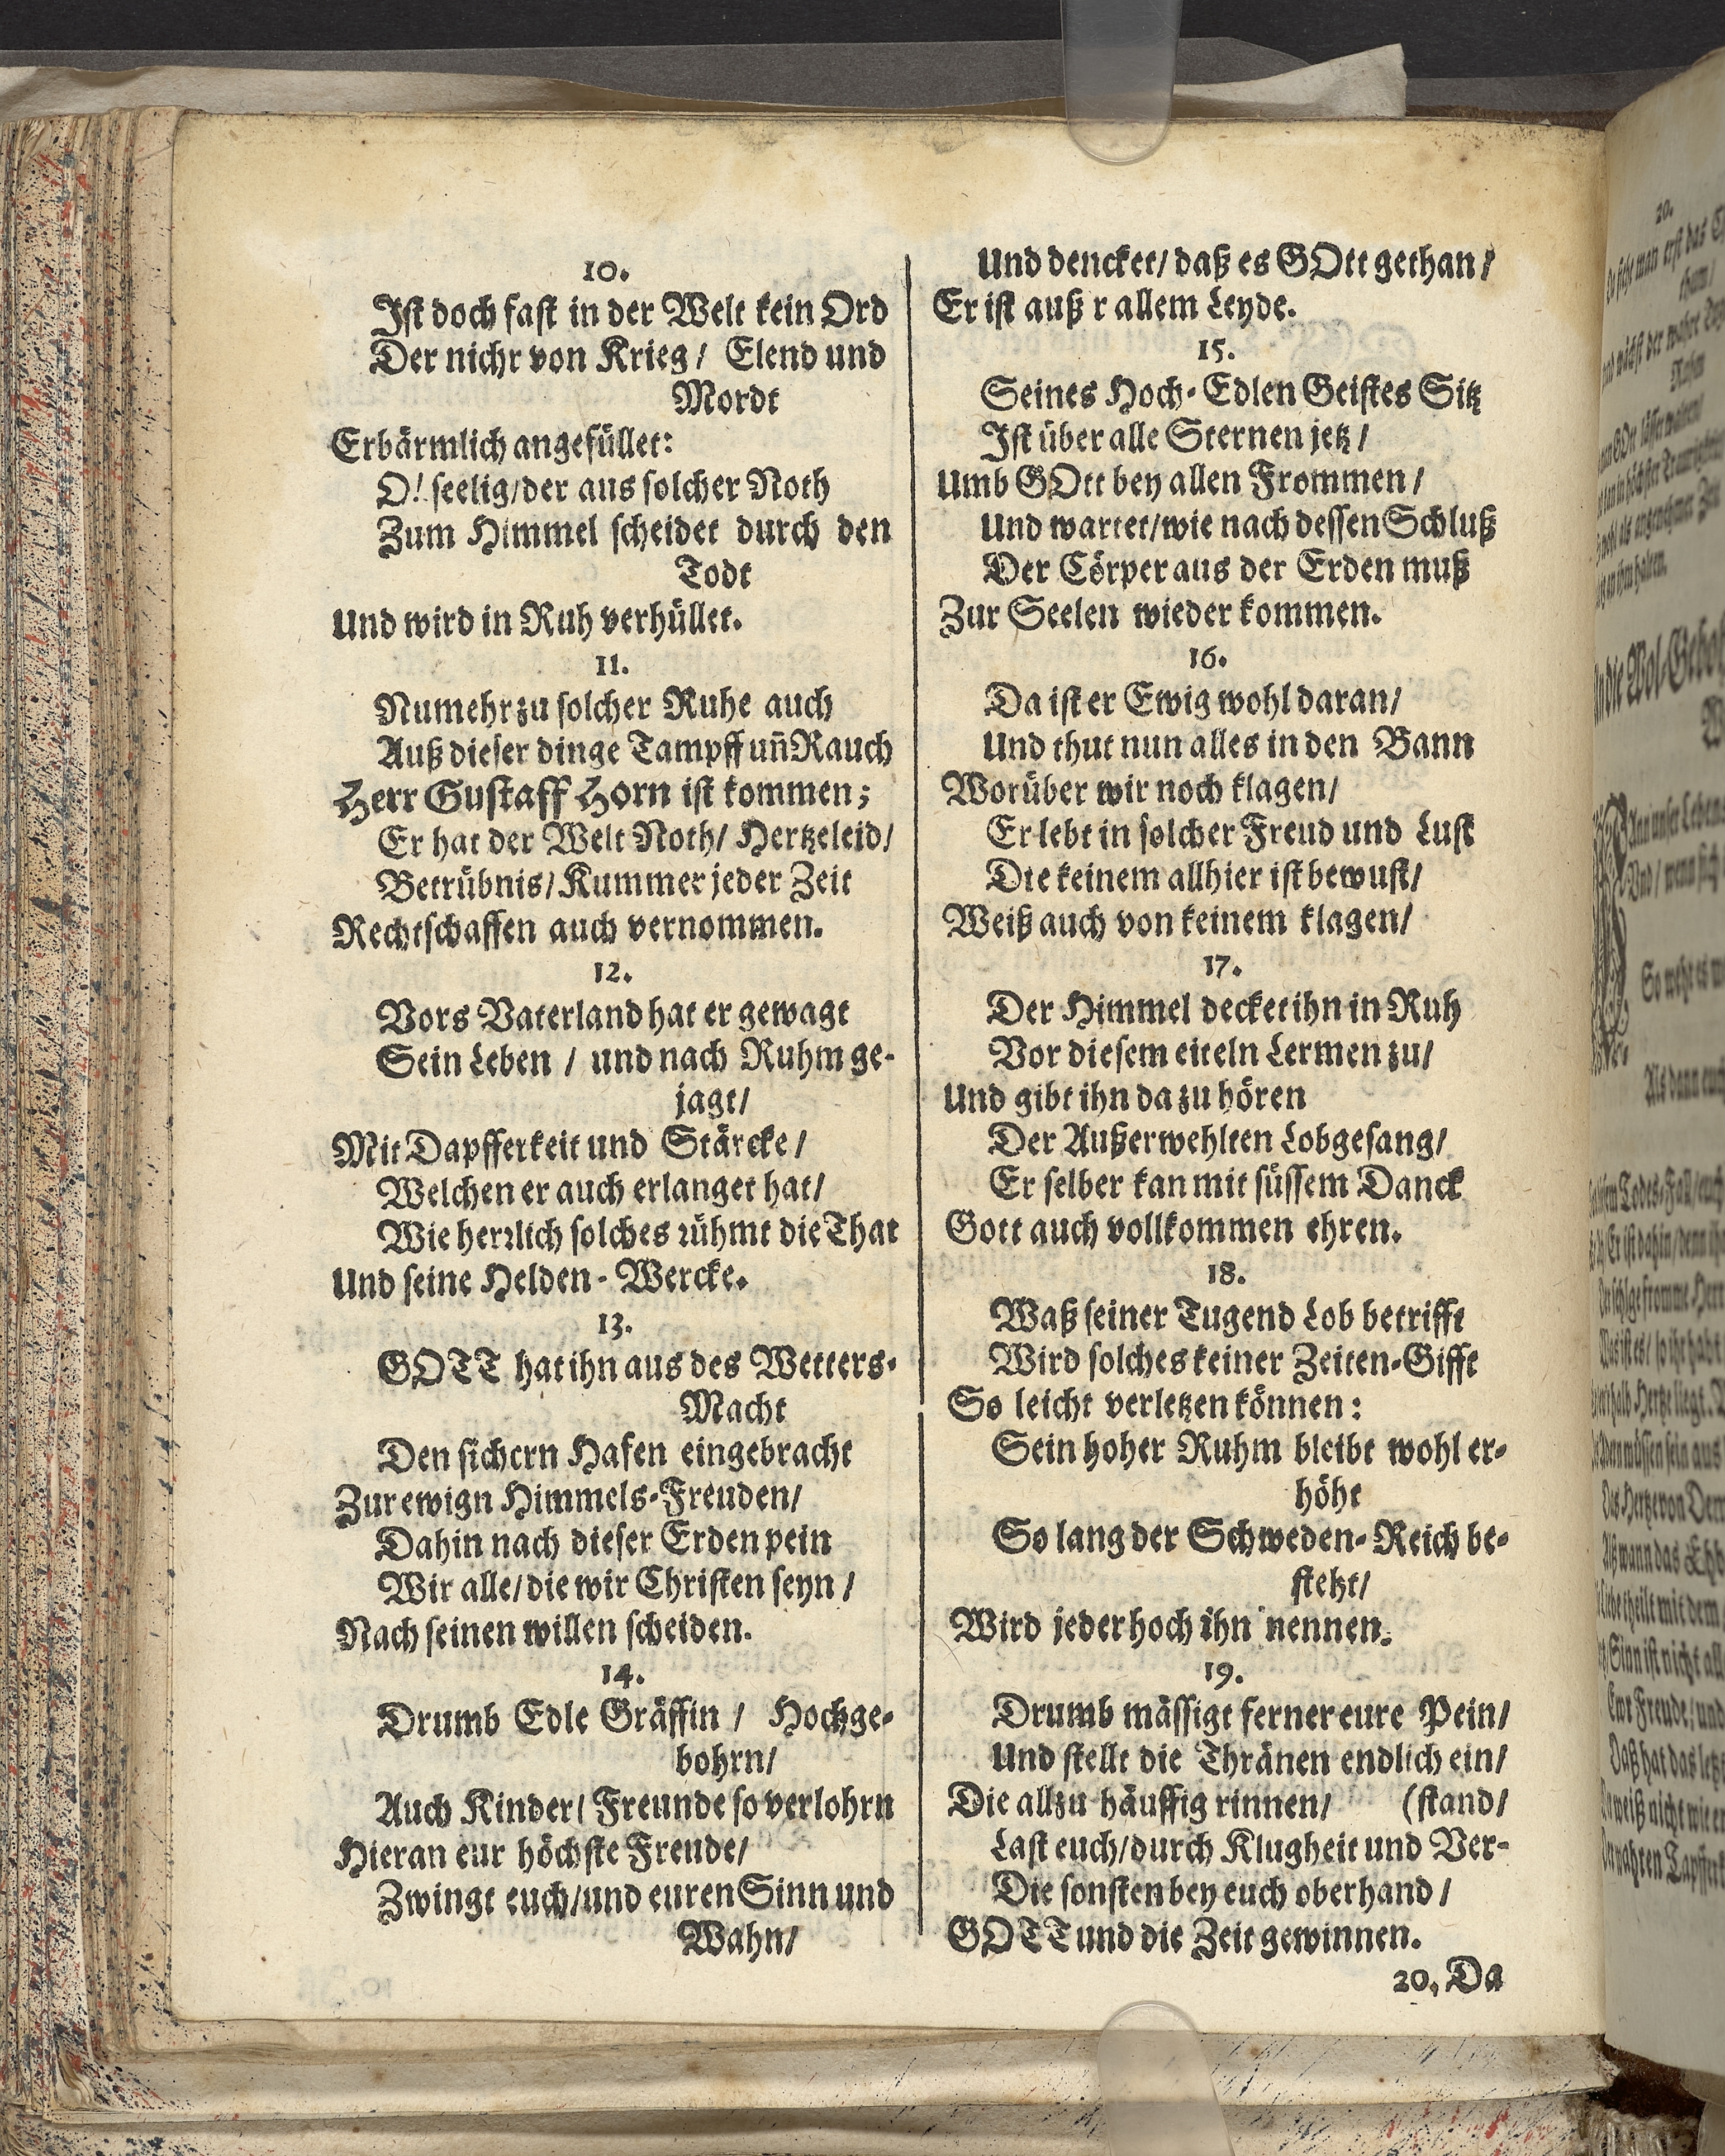 10.
Ist doch fast in der Welt kein Ord
Der nichr von Krieg / Elend und
Mordt
Erbärmlich angefüllet:
O! seelig/der aus solcher Noth
Zum Himmel scheidet durch den
Todt
Und wird in Ruh verhüllet.
11.
Numehr zu solcher Ruhe auch
Auß dieser dinge Tampff uñ Rauch
Herr Gustaff Horn ist kommen;
Er hat der Welt Noth/ Hertzeleid/
Betrübnis/ Kummer jeder Zeit
Rechtschaffen auch vernommen.
12.
Vors Vaterland hat er gewagt
Sein Leben / und nach Ruhm ge-
jagt/
Mit Dapfferkeit und Stärcke/
Welchen er auch erlanget hat/
Wie herrlich solches rühmt die That
Und seine Helden-Wercke.
13.
GOTT hat ihn aus des Wetters-
Macht
Den sichern Hafen eingebracht
Zur ewign Himmels-Freuden/
Dahin nach dieser Erden pein
Wir alle/die wir Christen seyn /
Nach seinen willen scheiden.
14.
Drumb Edle Gräffin / Hochge-
bohrn/
Auch Kinder/ Freunde so verlohrn
Hieran eur höchste Freude/
Zwingt euch/und euren Sinn und
Wahn/
Und dencket/ daß es GOtt gethan/
Er ist auß r allem Leyde.
15.
Seines Hoch-Edlen Geistes Sitz
Ist über alle Sternen jetz /
Umb GOtt bey allen Frommen /
Und wartet/wie nach dessen Schluß
Der Cörper aus der Erden muß
Zur Seelen wieder kommen.
16.
Da ist er Ewig wohl daran/
Und thut nun alles in den Bann
Worüber wir noch klagen/
Er lebt in solcher Freud und Lust
Die keinem allhier ist bewust/
Weiß auch von keinem klagen/
17.
Der Himmel decket ihn in Ruh
Vor diesem eiteln Lermen zu/
Und gibt ihn da zu hören
Der Außerwehlten Lobgesang/
Er selber kan mit süssem Danck
Gott auch vollkommen ehren.
18.
Waß seiner Tugend Lob betrifft
Wird solches keiner Zeiten-Gifft
So leicht verletzen können:
Sein hoher Ruhm bleibt wohl er-
höht
So lang der Schweden-Reich be-
steht/
Wird jeder hoch ihn nennen.
19.
Drumb mässigt ferner eure Pein/
Und stellt die Thränen endlich ein/
Die allzu häuffig rinnen/ (stand/
Last euch/durch Klugheit und Ver-
Die sonsten bey euch oberhand /
GOTT und die Zeit gewinnen.
20. Da
20.